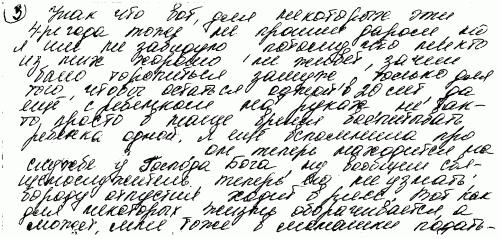 3
Знак что вот, для некоторых эти
4-ри года тоже не прошли даром, но
я им не завидую потому что никто
из них хорошо не живет, зачем
было торопиться замуж, только для
того, чтобы остаться одной в 20 лет да
ещё с ребенком на руках не
то, просто в наше время воспитывать
ребенка одной. Я ещё вспомнила про
он теперь находится на
службе у Господа Бога, ну вообщем свя-
щеннослужитель теперь, его не узнать
бороду отпустил ходит в рясе. Вот как
для некоторых жизнь оборачивается, а
может, мне тоже в монашки подать-